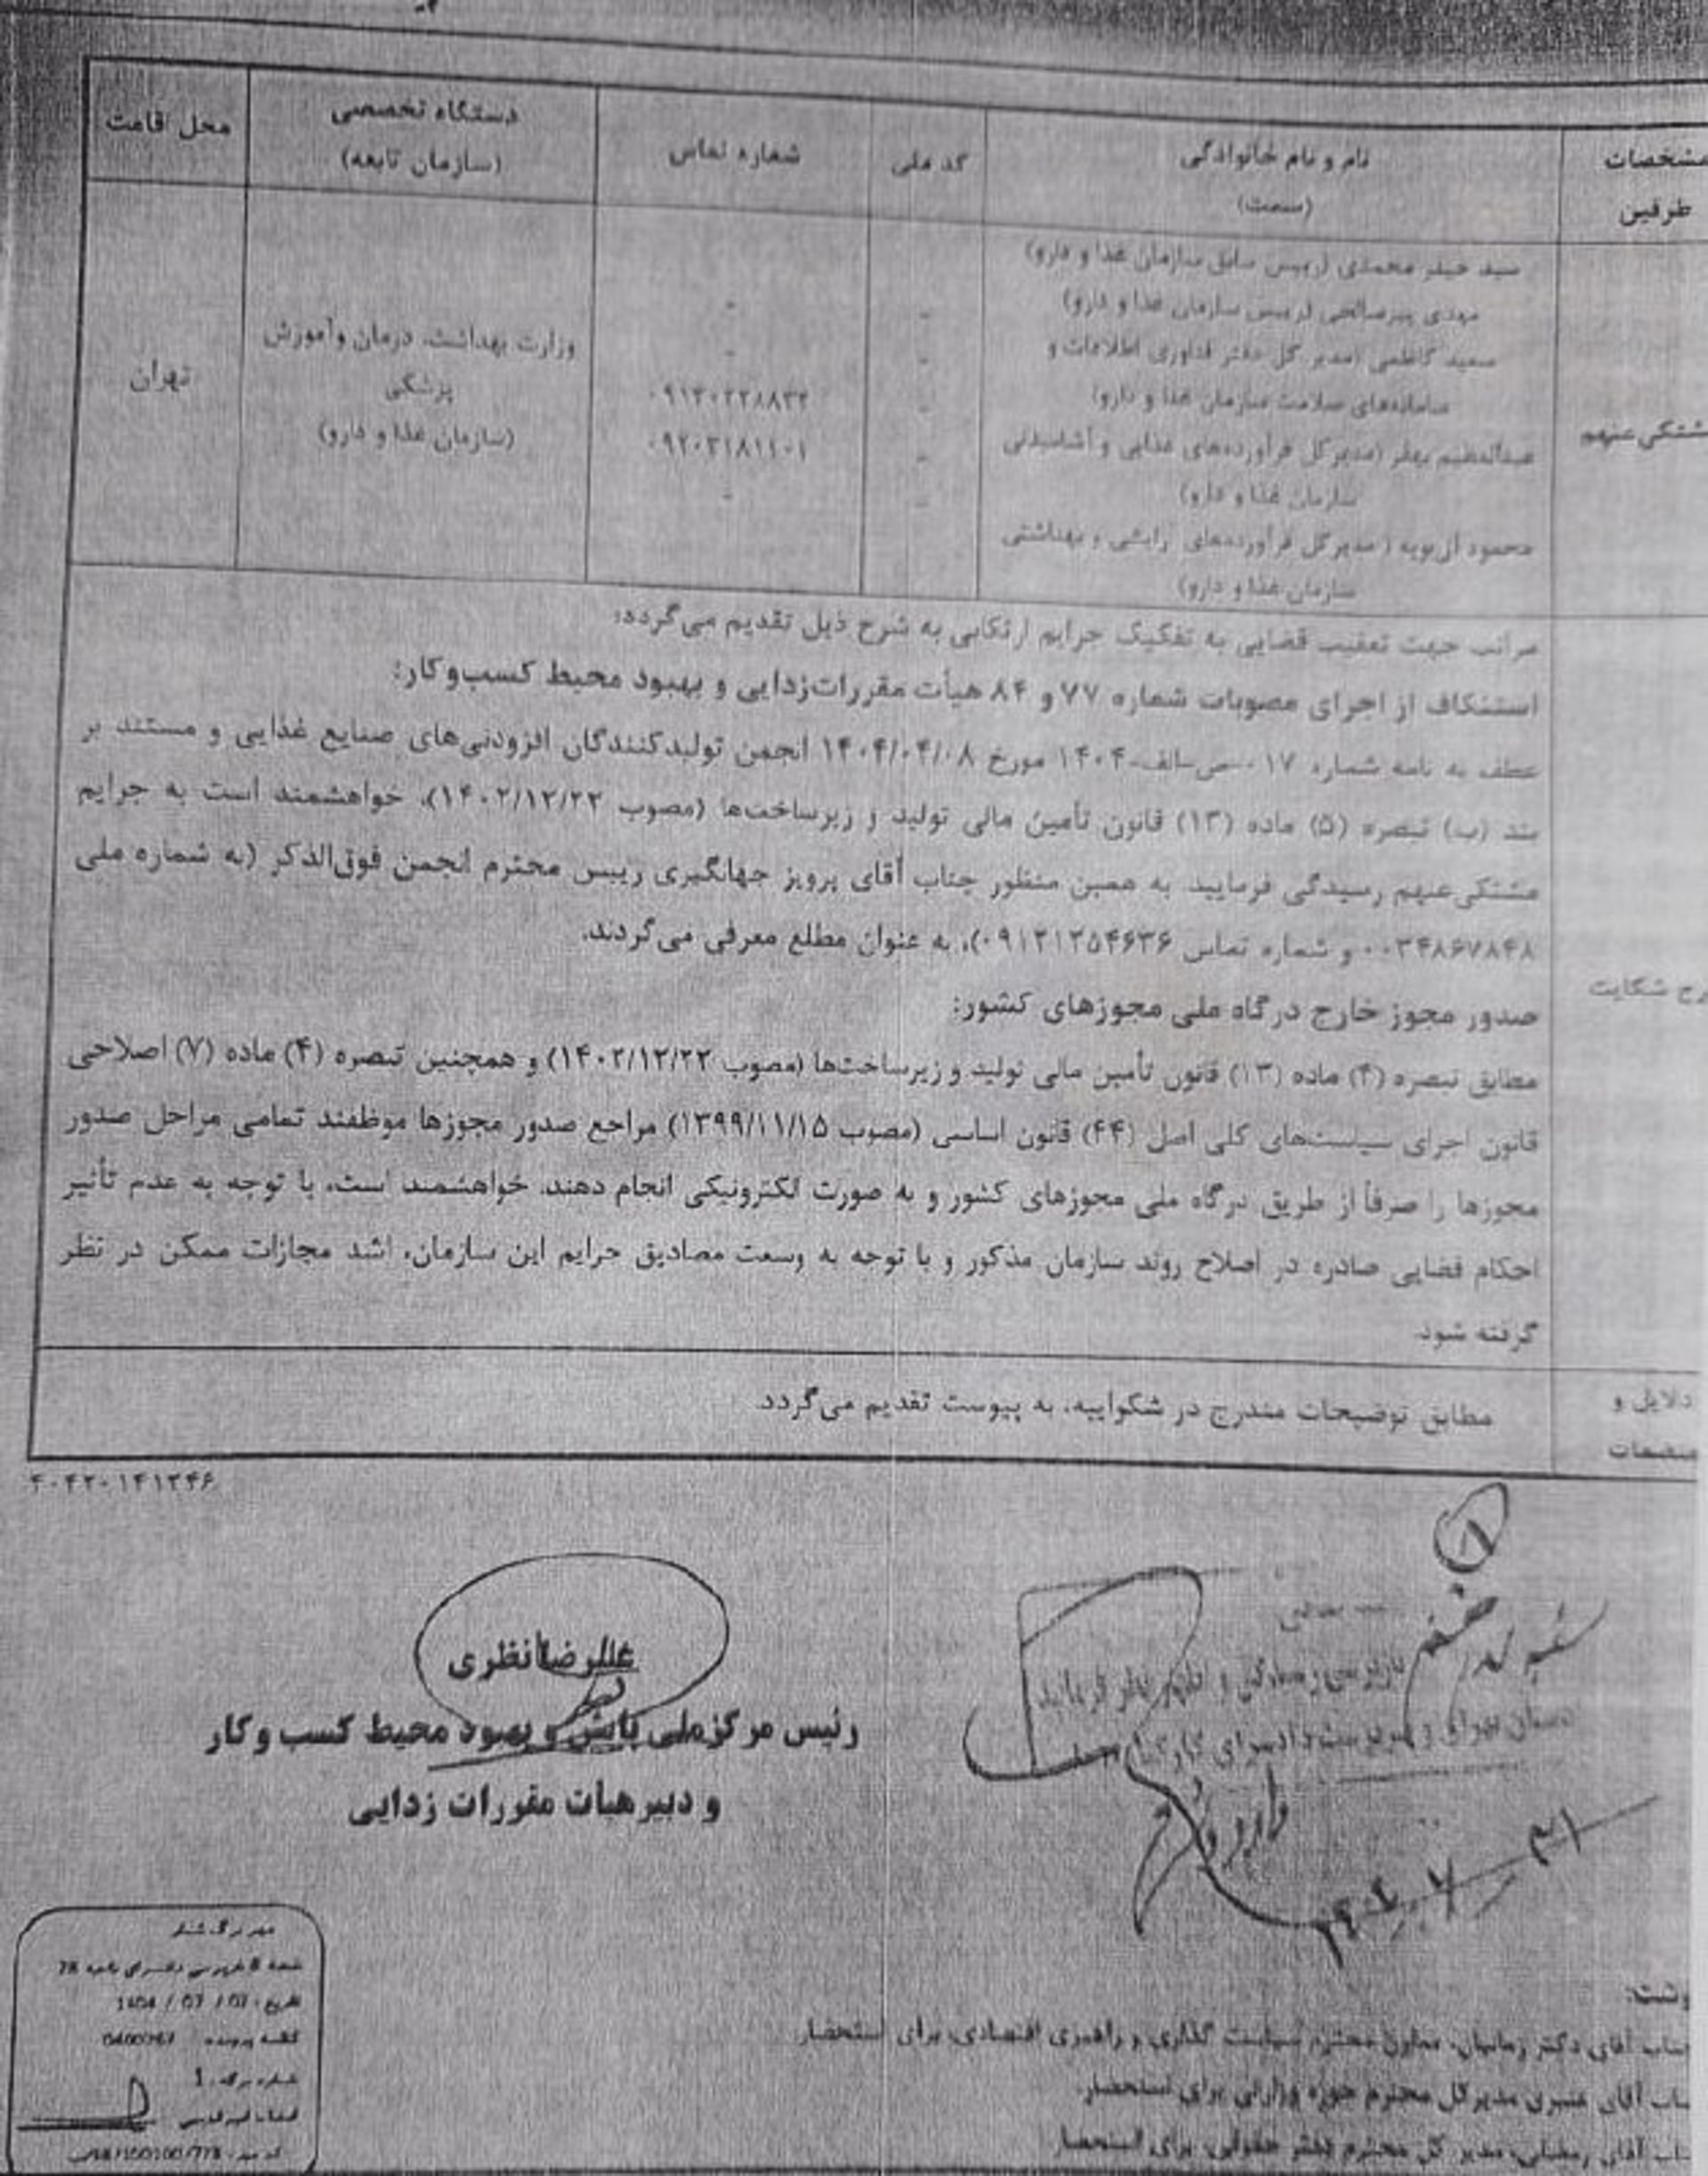 مشخصات طرفین
نام و نام خانوادگی (سمت)
کد ملی
شماره تماس
دستگاه تخصصی (سازمان تابعه)
محل اقامت
سید حیدر محمدی (رییس سابق سازمان غذا و دارو)
مهدی پیرصالحی (رییس سازمان غذا و دارو)
سعید کاظمی (مدیر کل دفتر فناوری اطلاعات و
سامانه‌های سلامت سازمان غذا و دارو)
عبدالعظیم بهفر (مدیرکل فرآورده‌های غذایی و آشامیدنی
سازمان غذا و دارو)
محمود آل‌بویه (مدیرکل فرآورده‌های آرایشی و بهداشتی
سازمان غذا و دارو)
وزارت بهداشت، درمان وآموزش
پزشکی
(سازمان غذا و دارو)
تهران
مراتب جهت تعقیب قضایی به تفکیک جرایم ارتکابی به شرح ذیل تقدیم می‌گردد:
استنکاف از اجرای مصوبات شماره ۷۷ و ۸۴ هیأت مقررات‌زدایی و بهبود محیط کسب‌وکار:
عطف به نامه شماره ۱۷۰-ص-الف-۱۴۰۴ مورخ ۱۴۰۴/۰۴/۰۸ انجمن تولیدکنندگان افزودنی‌های صنایع غذایی و مستند بر
بند (ب) تبصره (۵) ماده (۱۳) قانون تأمین مالی تولید و زیرساخت‌ها (مصوب ۱۴۰۲/۱۲/۲۲)، خواهشمند است به جرایم
مشتکی‌عنهم رسیدگی فرمایید به همین منظور جناب آقای پرویز جهانگیری رییس محترم انجمن فوق‌الذکر (به شماره ملی
۰۰۳۴۸۶۷۸۴۸ و شماره تماس ۰۹۱۲۱۲۵۴۶۳۶)، به عنوان مطلع معرفی می‌گردند.
صدور مجوز خارج درگاه ملی مجوزهای کشور:
مطابق تبصره (۴) ماده (۱۳) قانون تأمین مالی تولید و زیرساخت‌ها (مصوب ۱۴۰۲/۱۲/۲۲) و همچنین تبصره (۴) ماده (۷) اصلاحی
قانون اجرای سیاست‌های کلی اصل (۴۴) قانون اساسی (مصوب ۱۳۹۹/۱۱/۱۵) مراجع صدور مجوزها موظفند تمامی مراحل صدور
مجوزها را صرفاً از طریق درگاه ملی مجوزهای کشور و به صورت الکترونیکی انجام دهند. خواهشمند است، با توجه به عدم تأثیر
احکام قضایی صادره در اصلاح روند سازمان مذکور و با توجه به وسعت مصادیق جرایم این سازمان، اشد مجازات ممکن در نظر
گرفته شود.
مطابق توضیحات مندرج در شکواییه، به پیوست تقدیم می‌گردد.
دلایل و
۴۰۴۲۰۱۴۱۲۴۶
علیرضا نظری
رئیس مرکز ملی پایش و بهبود محیط کسب و کار
و دبیر هیأت مقررات زدایی
شعبه 8 بازپرسی دادسرای ناحیه 28
تاریخ: 07 / 07 / 1404
شماره برگه: 1
جناب آقای دکتر معاون محترم سیاست گذاری و راهبری اقتصادی، برای استحضار
آقای عنبری مدیرکل محترم حوزه وزارتی برای استحضار
آقای رمضانی، مدیر کل محترم دفتر حقوقی، برای استحضار